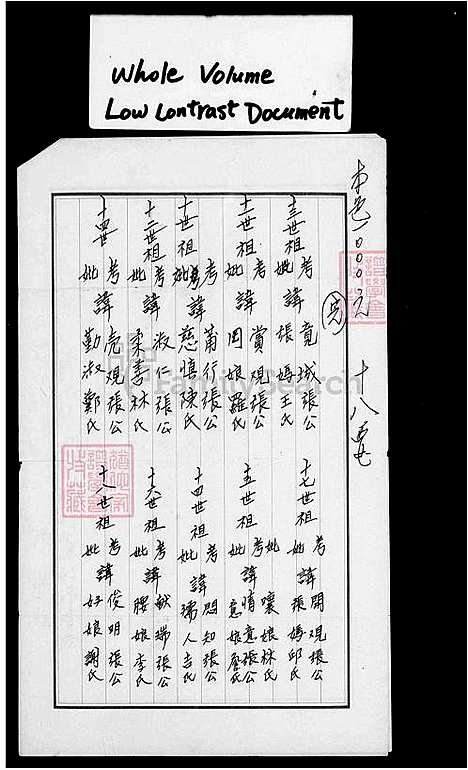 Whole Volume
Low Contrast Document
十八
世祖
考 竟城張公
妣 諱 張媽王氏
十一世祖
考 賞觀張公
妣 諱 因娘羅氏
十世祖
考 莆行張公
妣 諱 慈慎陳氏
十二世祖
考 淑仁張公
妣 諱 柔李林氏
考 諱 亮觀張公
妣 勤淑鄭氏
十七世祖
考 諱 開觀張公
妣 張媽邱氏
十五世祖
妣 嚷娘林氏
考 諱 情意張公
妣 意娘詹氏
十四世祖
考 諱 悶知張公
妣 孺人吉氏
十六世祖
考 諱 猷瑞張公
妣 腰娘李氏
十八世祖
考 諱 俊明張公
妣 好娘謝氏
FamilySearch